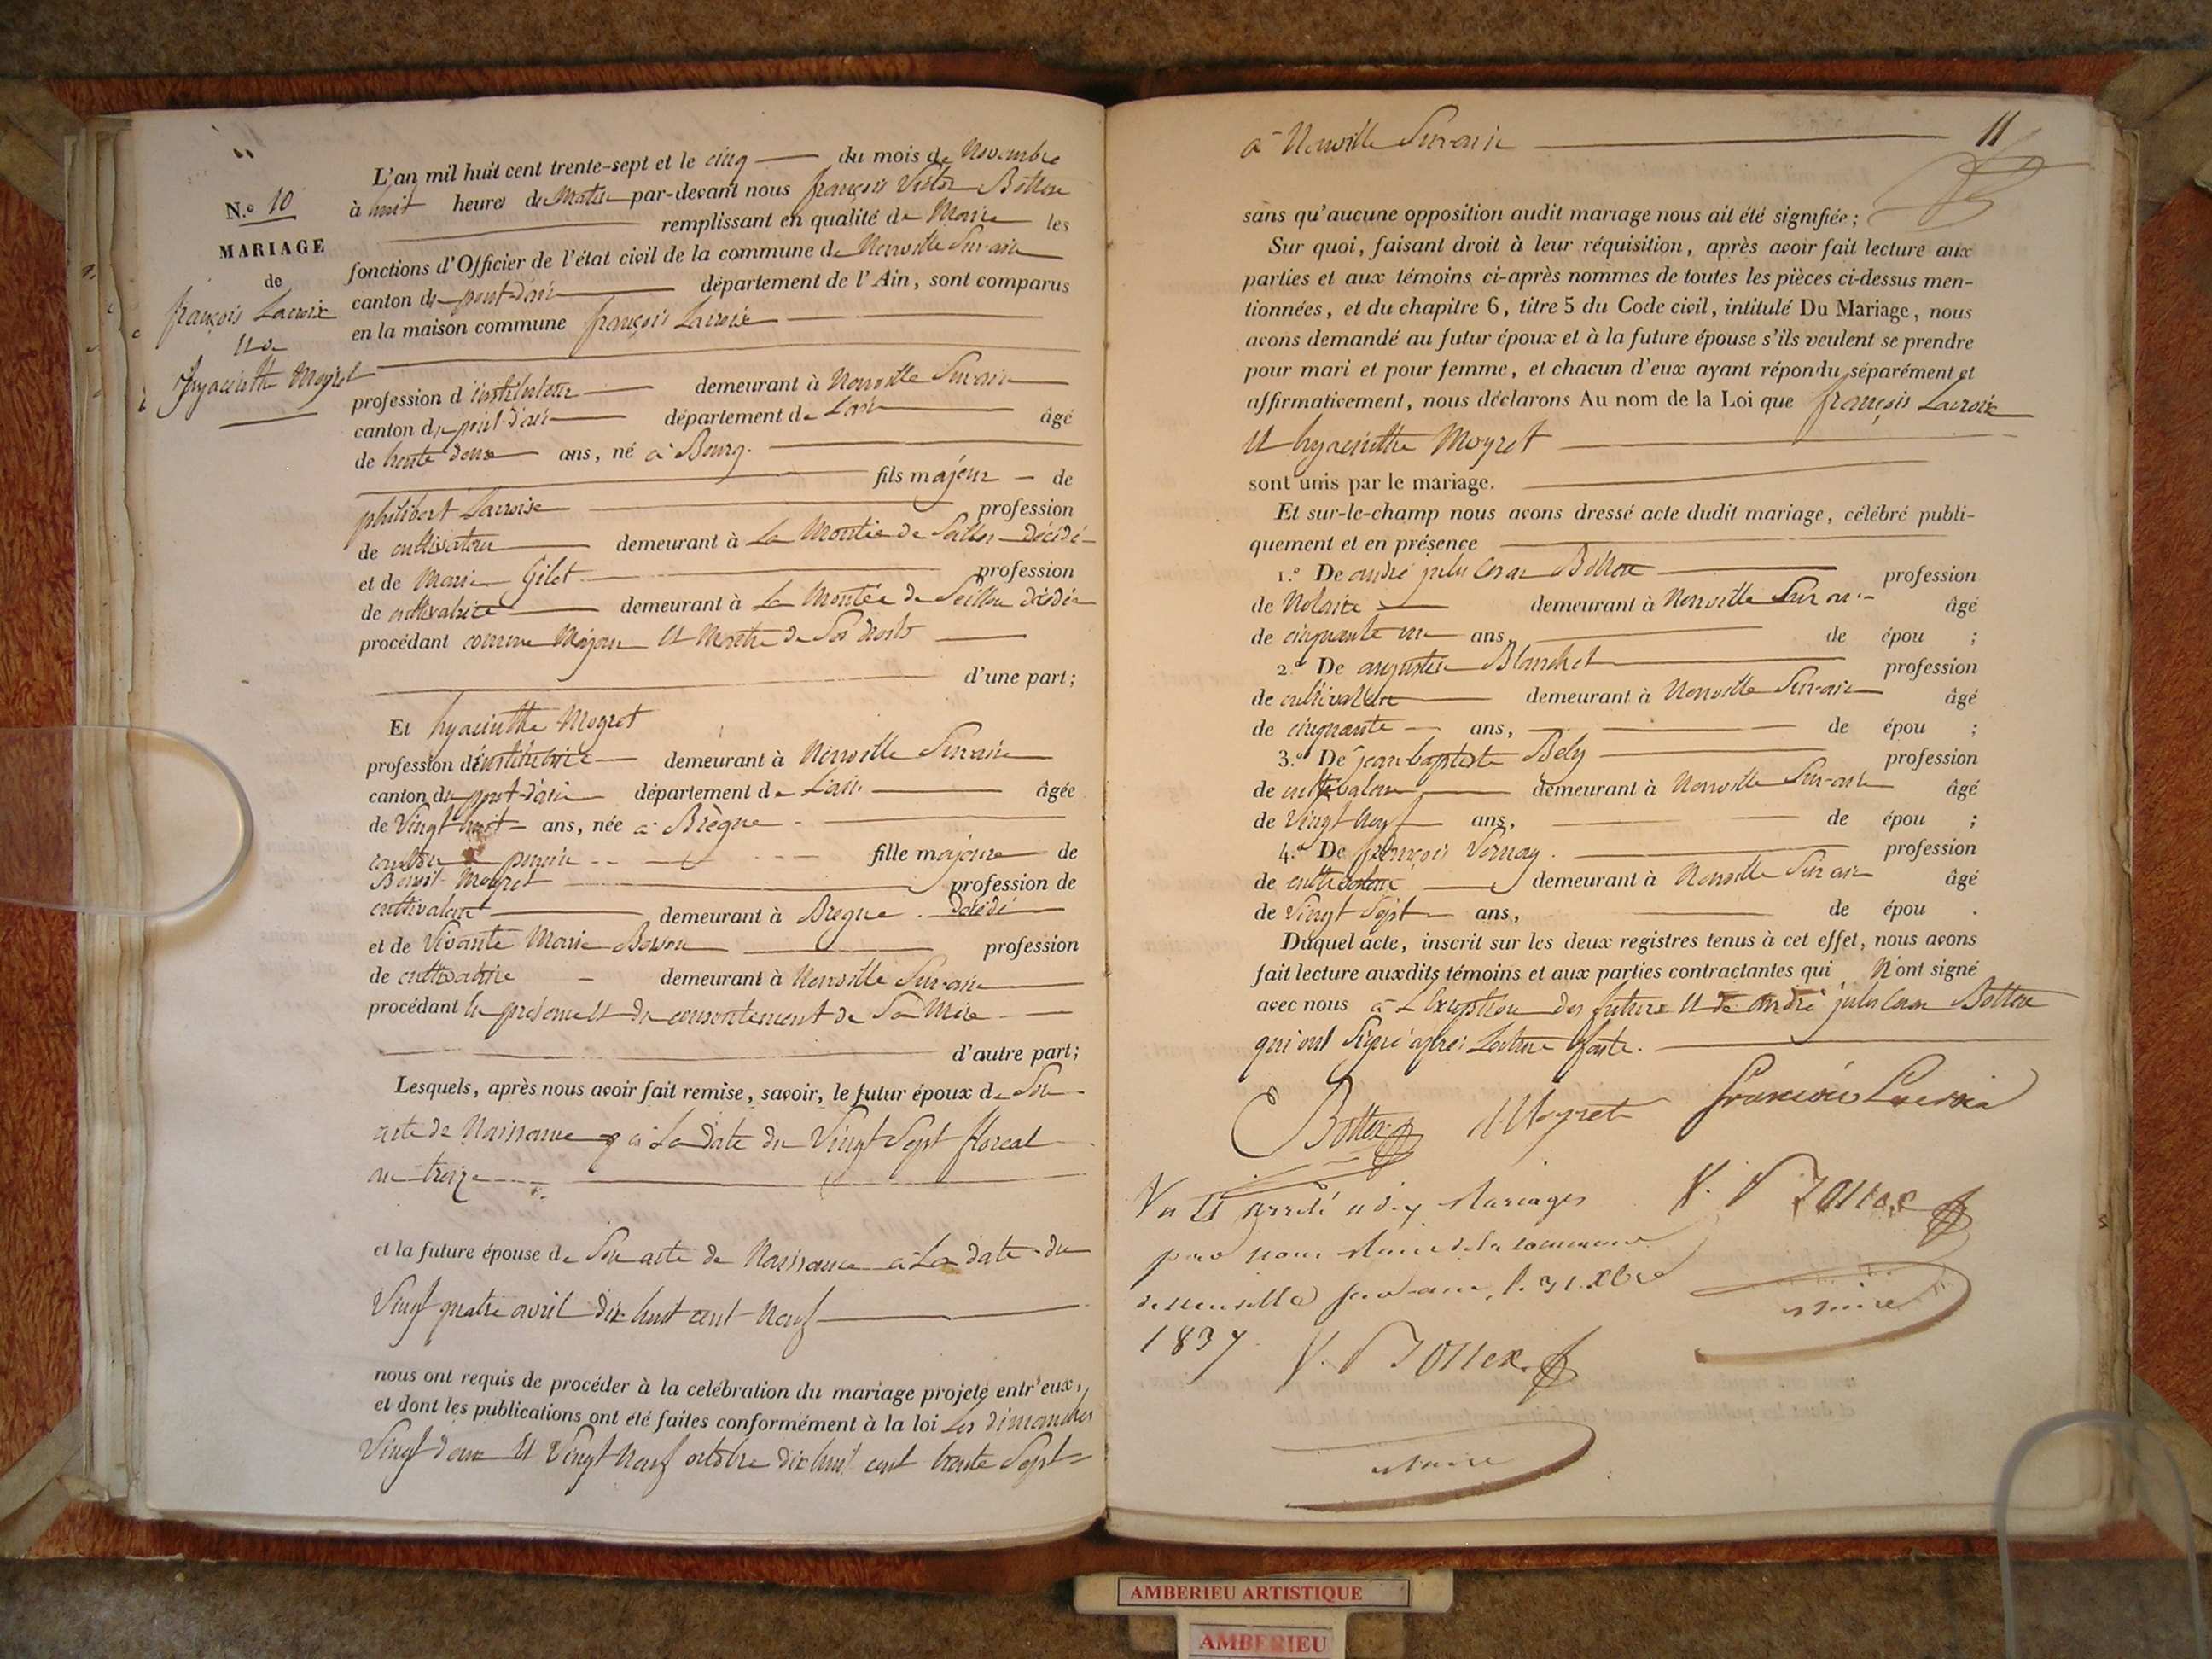 L'an mil huit cent trente-sept et le cinq du mois de Novembre
N.o 10
à huit heures du Matin par-devant nous françois Victor Bottex
remplissant en qualité de Maire les
MARIAGE
fonctions d'Officier de l'état civil de la commune de Neuville Sur ain
de
canton de pont-d'ain département de l'Ain, sont comparus
françois Lacroix
en la maison commune françois Lacroix
Et
hyacinthe Moyret
profession d'instituteur demeurant à Neuville Sur ain
canton de pont-d'ain département de L'ain âgé
de trente deux ans, né à Bourg.
fils majeur de
philibert Lacroix profession
de cultivateur demeurant à La Montée de Seillon décédé
et de Marie Gilet profession
de cultivatrice demeurant à La Montée de Seillon décédée
procédant comme Majeur et Maître de Ses droits
d'une part;
Et hyacinthe Moyret
profession d'institutrice demeurant à Neuville Sur ain
canton de pont-d'ain département de L'ain âgée
de Vingt huit ans, née à Brègne
canton de poncin fille majeure de
Benoit Moyret profession de
cultivateur demeurant à Bregne. décédé
et de Vivante Marie Bosson profession
de cultivatrice demeurant à Neuville Sur-ain
procédant en présence et du consentement de Sa Mère
d'autre part;
Lesquels, après nous avoir fait remise, savoir, le futur époux de Son
acte de Naissance à La date du Vingt Sept floreal
an treize
et la future épouse de Son acte de Naissance à La date du
Vingt quatre avril dix huit cent Neuf
nous ont requis de procéder à la celébration du mariage projeté entr'eux,
et dont les publications ont été faites conformément à la loi Les dimanches
Vingt deux et Vingt Neuf octobre dix huit cent trente Sept
à Neuville Sur-ain
11
sans qu'aucune opposition audit mariage nous ait été signifiée;
Sur quoi, faisant droit à leur réquisition, après avoir fait lecture aux
parties et aux témoins ci-après nommes de toutes les pièces ci-dessus men-
tionnées, et du chapitre 6, titre 5 du Code civil, intitulé Du Mariage, nous
avons demandé au futur époux et à la future épouse s'ils veulent se prendre
pour mari et pour femme, et chacun d'eux ayant répondu séparément et
affirmativement, nous déclarons Au nom de la Loi que françois Lacroix
et hyacinthe Moyret
sont unis par le mariage.
Et sur-le-champ nous avons dressé acte dudit mariage, célébré publi-
quement et en présence
1.o De andré jules Cesar Bottex profession
de Notaire demeurant à Neuville Sur ain âgé
de cinquante un ans, de épou ;
2.o De augustin Blanchet profession
de cultivateur demeurant à Neuville Sur-ain âgé
de cinquante ans, de épou ;
3.o De jean baptiste Bely profession
de cultivateur demeurant à Neuville Sur-ain âgé
de Vingt Neuf ans, de épou ;
4.o De françois Vernay. profession
de cultivateur demeurant à Neuville Sur ain âgé
de Vingt Sept ans, de épou .
Duquel acte, inscrit sur les deux registres tenus à cet effet, nous avons
fait lecture auxdits témoins et aux parties contractantes qui N'ont signé
avec nous à L'exception des futurs et de andré jules Cesar Bottex
qui ont Signé après Lecture faite.
Bottex Moyret francois Lacroix
Vu et arrêté à dix Mariages V. Bottex
par nous Maire de la commune
de Neuville Sur-ain, le 31 Xbre maire
1837 V. Bottex
maire
AMBERIEU ARTISTIQUE
AMBERIEU